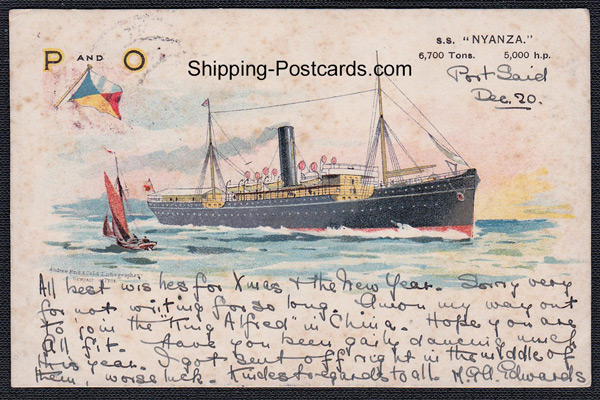 P AND O
S.S. "NYANZA."
6,700 Tons. 5,000 h.p.
Shipping-Postcards.com
Port Said
Dec. 20.
Andrew Reid & Co Ld Lithographers
All best wishes for Xmas & the New Year. Sorry very
for not writing for so long. Am on my way out
to join the "King Alfred" in China. Hope you are
all fit. Have you been gaily dancing much
this year. I got sent off right in the middle of
them, worse luck. Kindest regards to all. Edwards